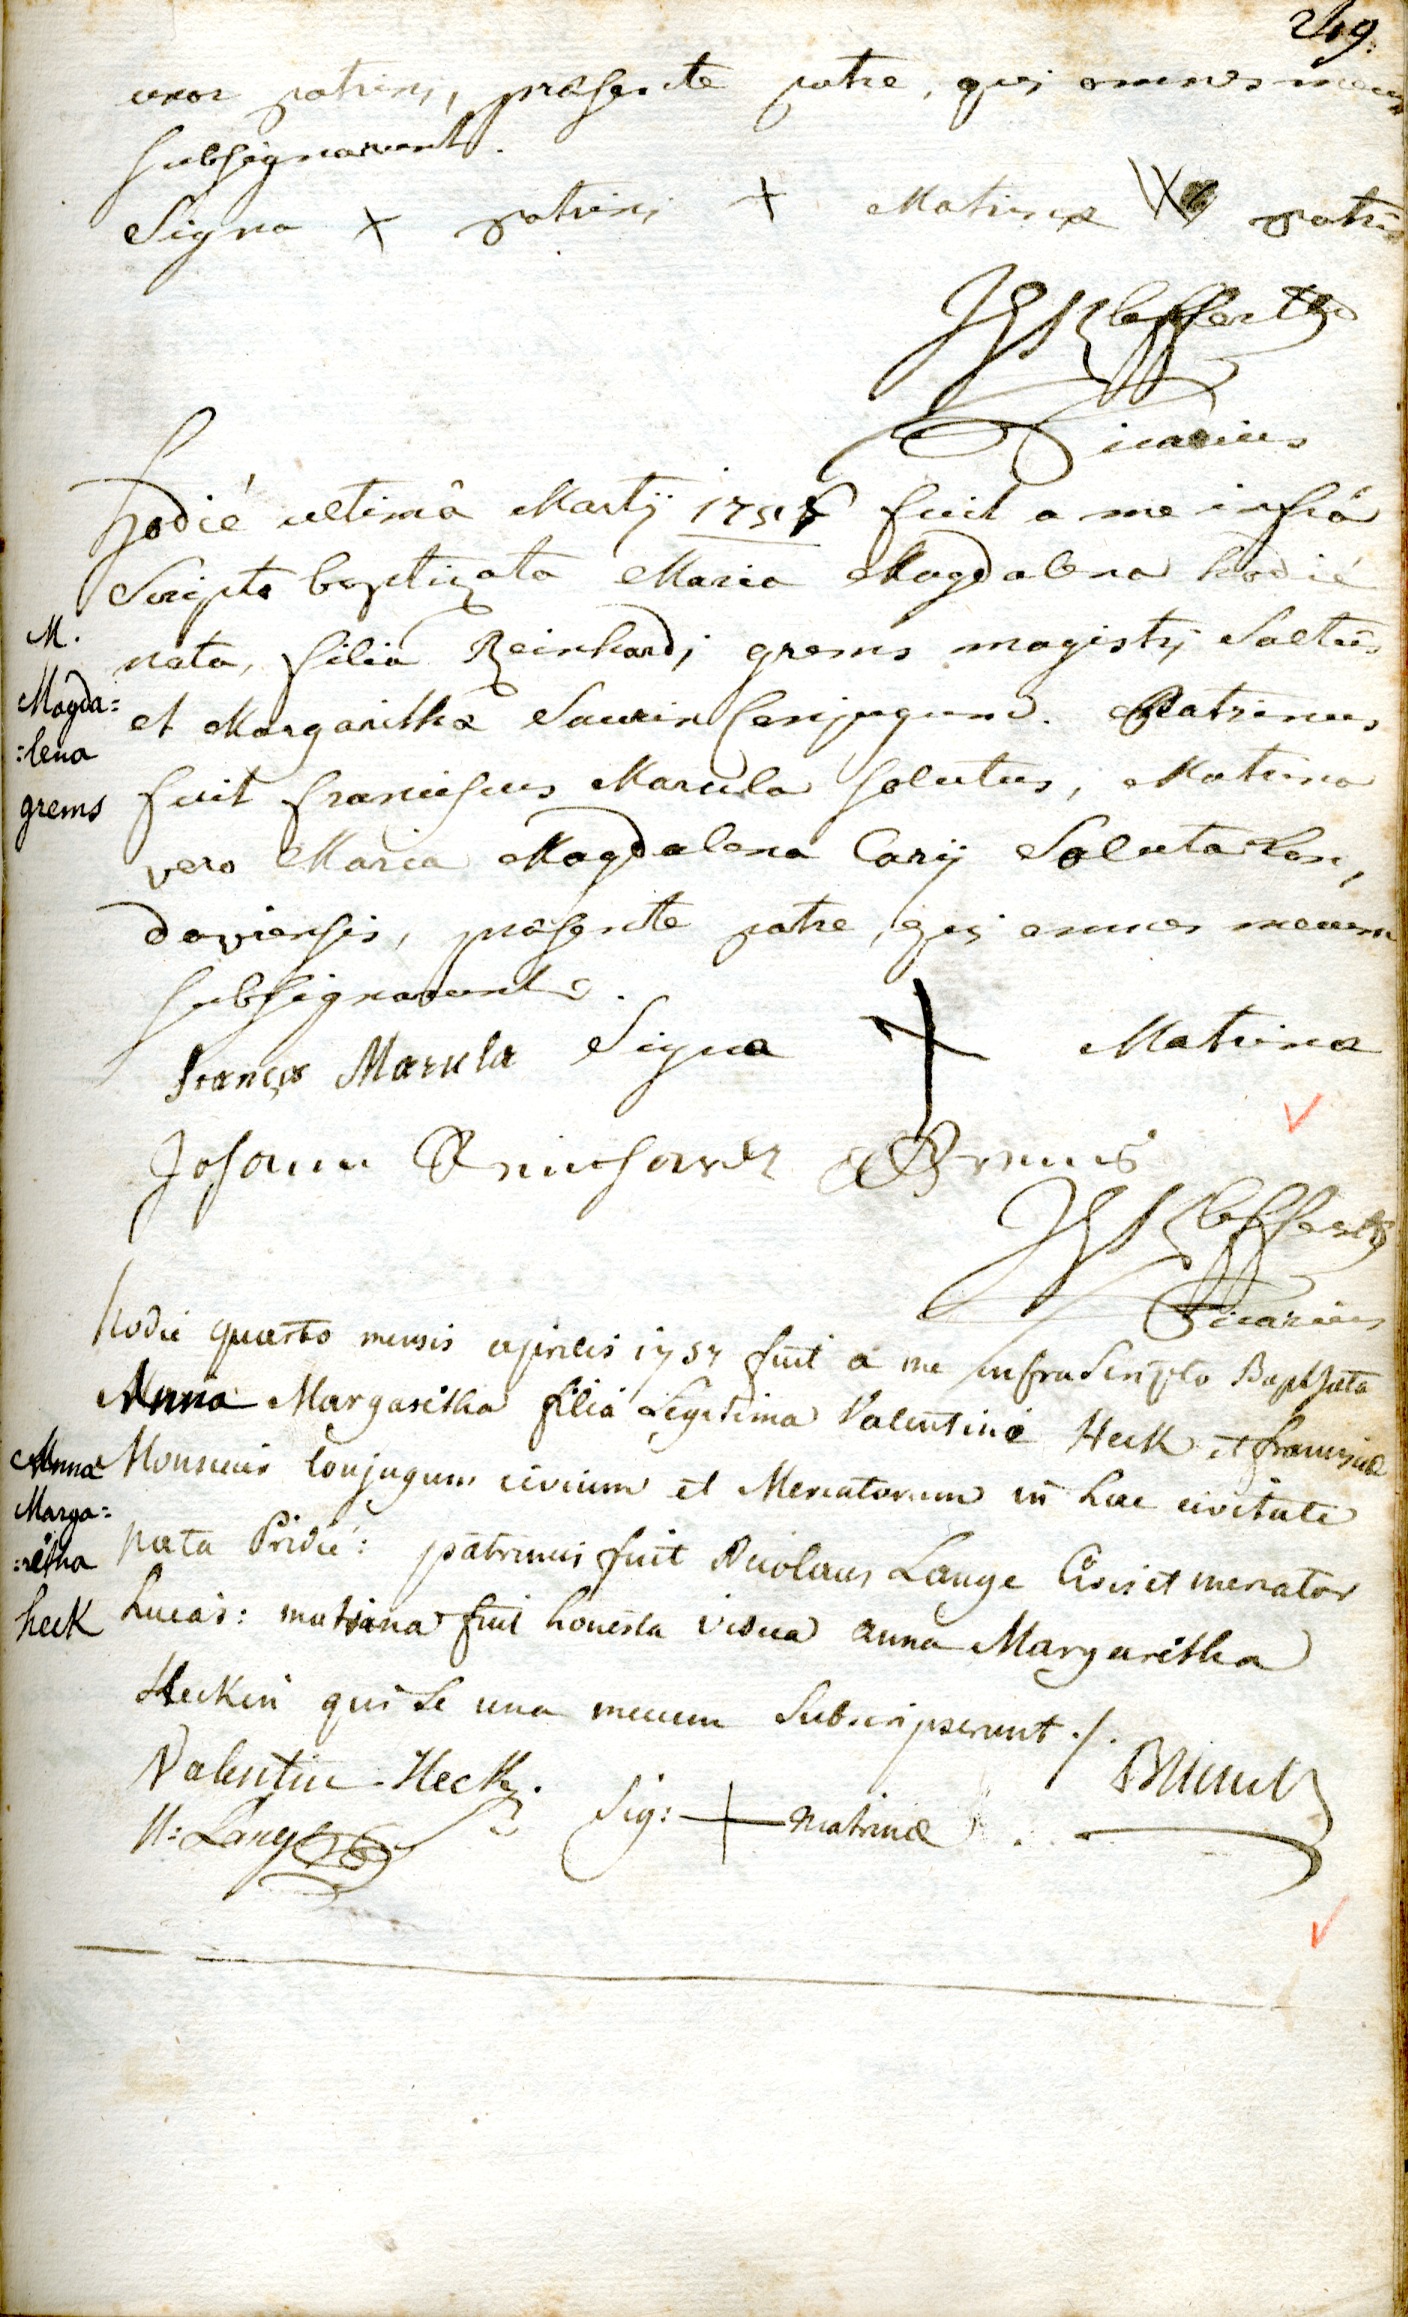 249.
uxor patrini, præsente patre, qui omnes mecum
subsignarunt.
Signa + patrini + Matrinæ patris
Klefferth
Vicarius
hodié ultimâ Martij 1757 fuit a me infrà
Scripto baptizata Maria Magdalena hodié
nata, filia Reinhardi grems magistri Saltûs
et Margarithæ Saurin Conjugum. Patrinus
fuit franciscus Marula solutus, Matrina
vero Maria Magdalena Carij Soluta Lan,
daviensis, præsente patre, qui omnes mecum
subsignarunt.
M.
Magda=
=lena
grems
françois Marula Signa + Matrinæ
Johann Reinhardt
Klefferth
Vicarius
hodie quarto mensis aprilis 1757 fuit a me infrascripto Baptisata
Anna Margaritha filia Legitima Valentini Heck et franciscæ
conjugum civium et Mercatorum in hac civitate
nata Pridie: patrinus fuit Nicolaus Lange Civis et mercator
hucas: matrina fuit honesta vidua anna Margaritha
Heckin qui se una mecum subscripserunt ./.
Anna
Marga=
=retha
heck
Valentin Heck.
N: Lang Sig: + matrinæ